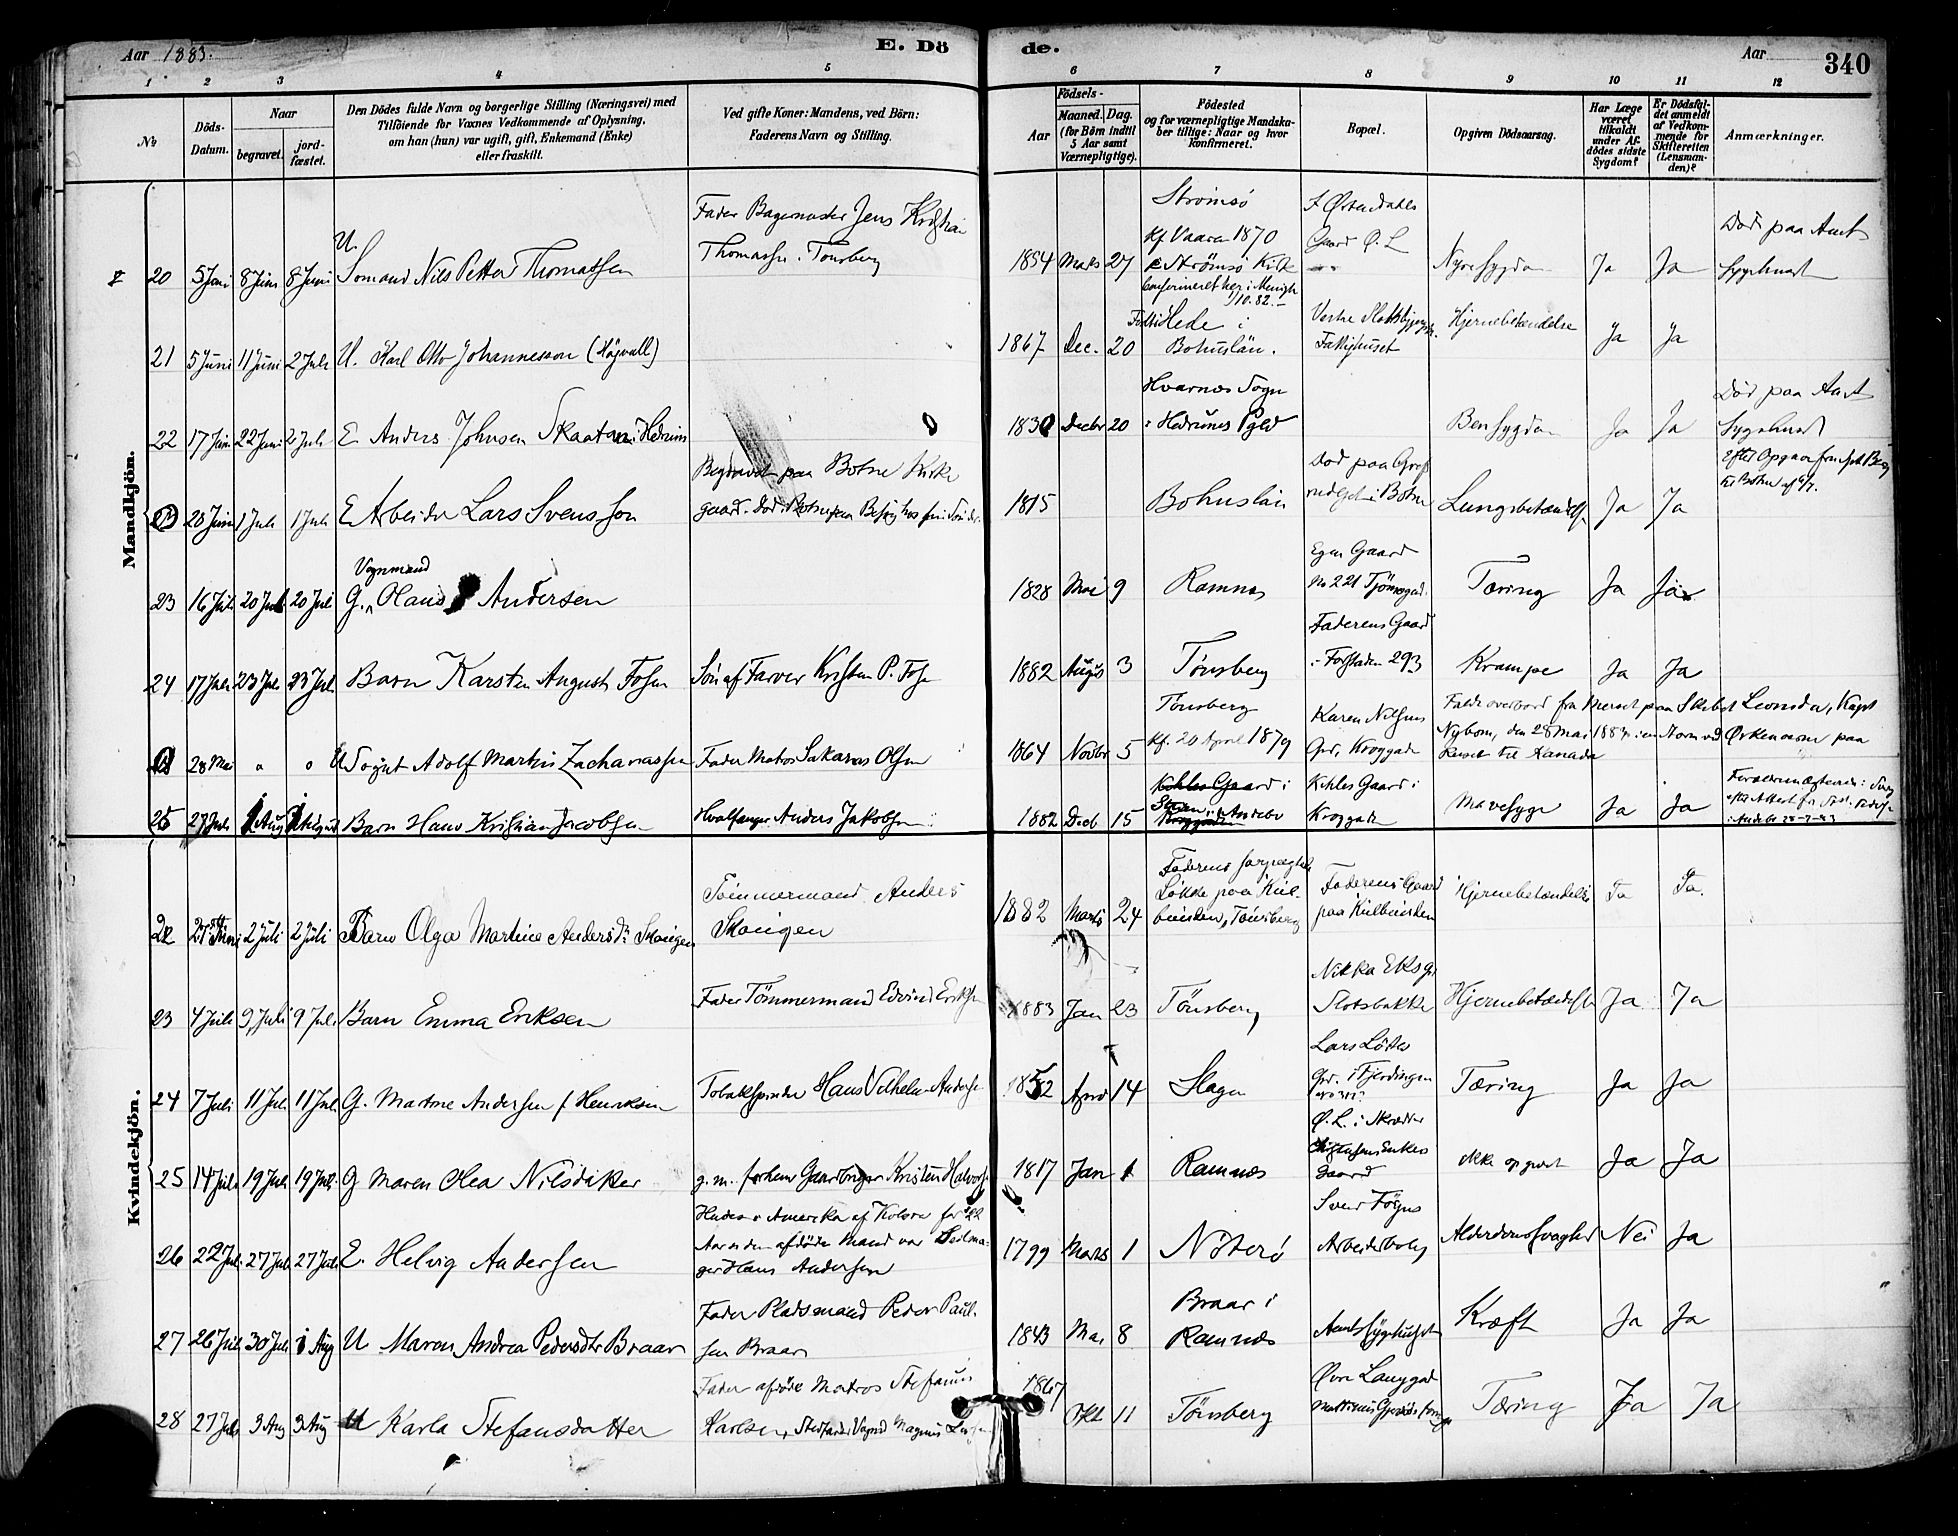 Aar 1883.
E. Dö
de.
Aar
340
1 2 3 4 5 6 7 8 9 10 11 12
No
Döds-Datum.
Naar
begravet.
jord-fæstet.
Den Dödes fulde Navn og borgerlige Stilling (Næringsvei) med
Tilföiende for Voxnes Vedkommende af Oplysning,
om han (hun) var ugift, gift, Enkemand (Enke)
eller fraskilt.
Ved gifte Koner: Mandens, ved Börn:
Faderens Navn og Stilling.
Födsels-
Aar
Maaned. Dag.
(for Börn indtil
5 Aar samt
Værnepligtige).
Födested
og for værnepligtige Mandska-
ber tillige: Naar og hvor
konfirmeret.
Bopæl.
Opgiven Dödsaarsag.
Har Læge
været
tilkaldt
under Af-
dödes sidste
Sygdom?
Er Dödsfal-
det anmeldt
af Vedkom-
mende for
Skifteretten
(Lensman-
den)?
Anmærkninger.
Mandkjön.
20 5 Juni 8 Juni 8 Juni U. Sömand Nils Petter Thomassen
Fader Bagermester Jens Kristian
Thomassen. Tonsberg
1854 Marts 27
Strömsö
Kf. Vaaren 1870
Strömsö Kirke
Gaard Ö. L.
Nyresygdom Ja Ja
Död paa Amts
Sygehuset
21 5 Juni 11 Juni 2 Juli U. Karl Otto Johannesson (Högvall)
1867 Dec. 20
Confirmeret her i Menigh
1/10.82.
Födt i Hede i
Bohuslän.
Fattighuset
Hjernebetændelse Ja Ja
22 17 Juni 22 Juni 2 Juli E. Anders Johnsen Skaatan i Hedrum
1830 Decbr 20
Hvarnes Sogn
i Hedrums Pgld
Bensygdom Ja Ja
Död paa Amts
Sygehuset
28 Juni 1 Juli 1 Juli E Arbeider Lars Svensson
Begravet paa Botne Kirke
gaard. Död i Botne paa Besög hos sin Sön der.
1815 Bohuslän
Död paa
i Botne
Lungebetændelse Ja Ja
Efter Opgave fra
til Botne af
23 16 Juli 20 Juli 20 Juli G. Vognmand Olaus Andersen
1828 Mai 9 Ramnes
Egen Gaard
No 221 Tjömegad.
Tæring Ja Ja
24 17 Juli 23 Juli 23 Juli Barn Karsten August Fosen
Sön af Farver Kristen P. Fosen
1882 Augus 3 Tönsberg
Faderens Gaard
i Forstaden 293
Krampe Ja Ja
28 Mai " " U Jogut Adolf Martin Zachariassen
Fader Matros Sakarias Olsen
1864 Novbr 5
Tönsberg
Kf. 20 April 1879
Karen Nilsens
Grd. Kroggade
Faldt overbord fra Merset paa Skibet Leonidas, Kapt
Nybom, den 28 Mai 1883 i en Storm ved Örkenöerne paa
Reise til Kanada
25 27 Juli 1 Aug 1 August Barn Hans Kristian Jacobsen
Hvalfanger Anders Jakobsen
1882 Decb 15
Kihles Gaard i
Kroggaden
i Andebu
Kihles Gaard i
Kroggade
Mavesyge Ja Ja
i Andebu 28-7-83
Kvindekjön.
22 27 Juni 2 Juli 2 Juli Barn Olga Martine Andersdr Skougen
Tömmermand Anders
Skougen
1882 Marts 24
Faderens forpagtede
Lökke paa Kiil-
binsken, Tönsberg
Faderens Gaard
paa Kiilbinsken
Hjernebetændelse Ja Ja.
23 4 Juli 9 Juli 9 Juli Barn Emma Eriksen
Fader Tömmermand Edvind Eriksen
1883 Jan 23 Tönsberg
Slotsbakke
Hjernebetændelse Ja Ja
24 7 Juli 11 Juli 11 Juli G. Martine Andersen f. Henriksen
Tobakspinder Hans Vilhelm Andersen
1852 April 14 Slagen
Lars Löite
Grd. i Fjerdingen
Tæring Ja Ja
25 14 Juli 19 Juli 19 Juli G Maren Olea Nilsdaker
g. m. forhenv Gaardbruger Kristen Halvors.
1817 Jan 1 Ramnes
Ö. L. i Skrædder
Enkes
Gaard
ikke opgivet Ja Ja
26 22 Juli 27 Juli 27 Juli E. Helvig Andersen
i Amerika af Kolera for 22
Aar siden afdöde Mand var Seilma-
ger Hans Andersen
1799 Marts 1 Nöterö
Svend Föyns
Arbeiderbolig
Alderdomssvaghed Nei Ja
27 26 Juli 30 Juli 1 Aug U Maren Andrea Pedersdtr Braar
Fader Pladsmand Peder Paul-
sen Braar
1843 Mai 8
Braar i
Ramnes
Amtssygehuset
Kræft Ja Ja
28 27 Juli 3 Aug 3 Aug U Karla Stefansdatter
Fader afdöde Matros Stefanus
Karlsen, Stedfader Vognmd Magnus
1867 Okt 11 Tönsberg
Övre Langgad
Tæring Ja Ja